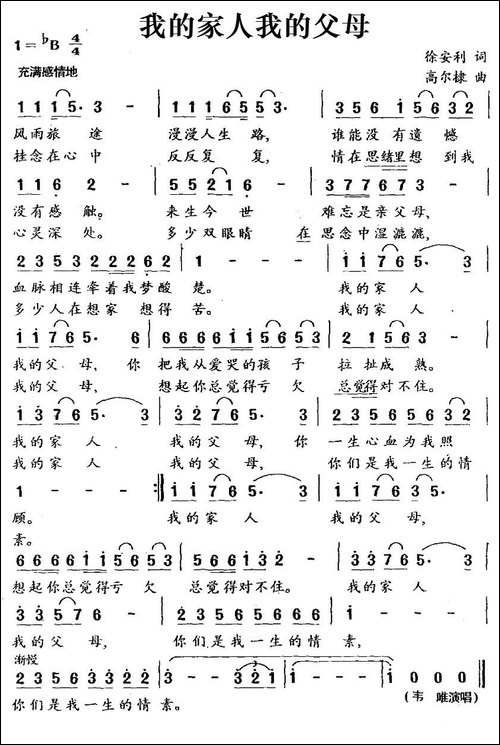 我的家人我的父母
1=♭B 4/4
徐安利 词
充满感情地
高尔棣 曲
1 1 1 1 5· 3 - | 1 1 1 6 5 5 3 | 3 5 6 1 5 6 5 3 |
风雨旅 途 漫漫人生 路, 谁能没有遗 憾
挂念在心中 反反复 复, 情在思绪里想 到我
1 1 6 2 - | 5 5 2 1 6 - | 3 7 7 6 7 3 - |
没有感 触。 来生今 世 难忘是亲父母,
心灵深 处。 多少双眼睛 在思念中湿漉漉,
2 3 5 3 2 2 2 6 2 | 1 - - - | i i 7 6 5· 3 |
血脉相连牵着我梦酸 楚。 我的家 人
多少人在想家 想得 苦。 我的家 人
i i 7 6 5· 6 | 6 6 6 6 i i 5 6 5 3 | 2 1 5 6 3 - |
我的父 母, 你 把我从爱哭的孩 子 拉扯成 熟。
我的父 母, 想起你总觉得亏 欠 总觉得对不住。
i 3 7 6 5· 3 | 3 2 7 6 5· 3 | 2 3 5 6 5 6 3 2 |
我的家 人 我的父 母, 你 一生心血为我照
我的家 人 我的父 母, 你们是我一生的情
1 - - - :‖ i i 7 6 5· 3 | i i 7 6 5· 3 5 |
顾。 我的家 人 我的父 母,
素。
6 6 6 6 i i 5 6 5 3 | 5 5 5 6 i 3 2 - | 3 3 7 6 5· 3 |
想起你总觉得亏 欠 总觉得对不住。 我的家 人
3 3 5 7 6 - | 2 3 5 6 5 6 6 6 | i - - - |
我的父 母, 你们是我一生的情 素,
渐慢
2 3 5 6 3 3 2 2 | i - - 3 2 i | i - - - | i 0 0 0 ‖
你们是我一生的情 素。
(韦 唯演唱)